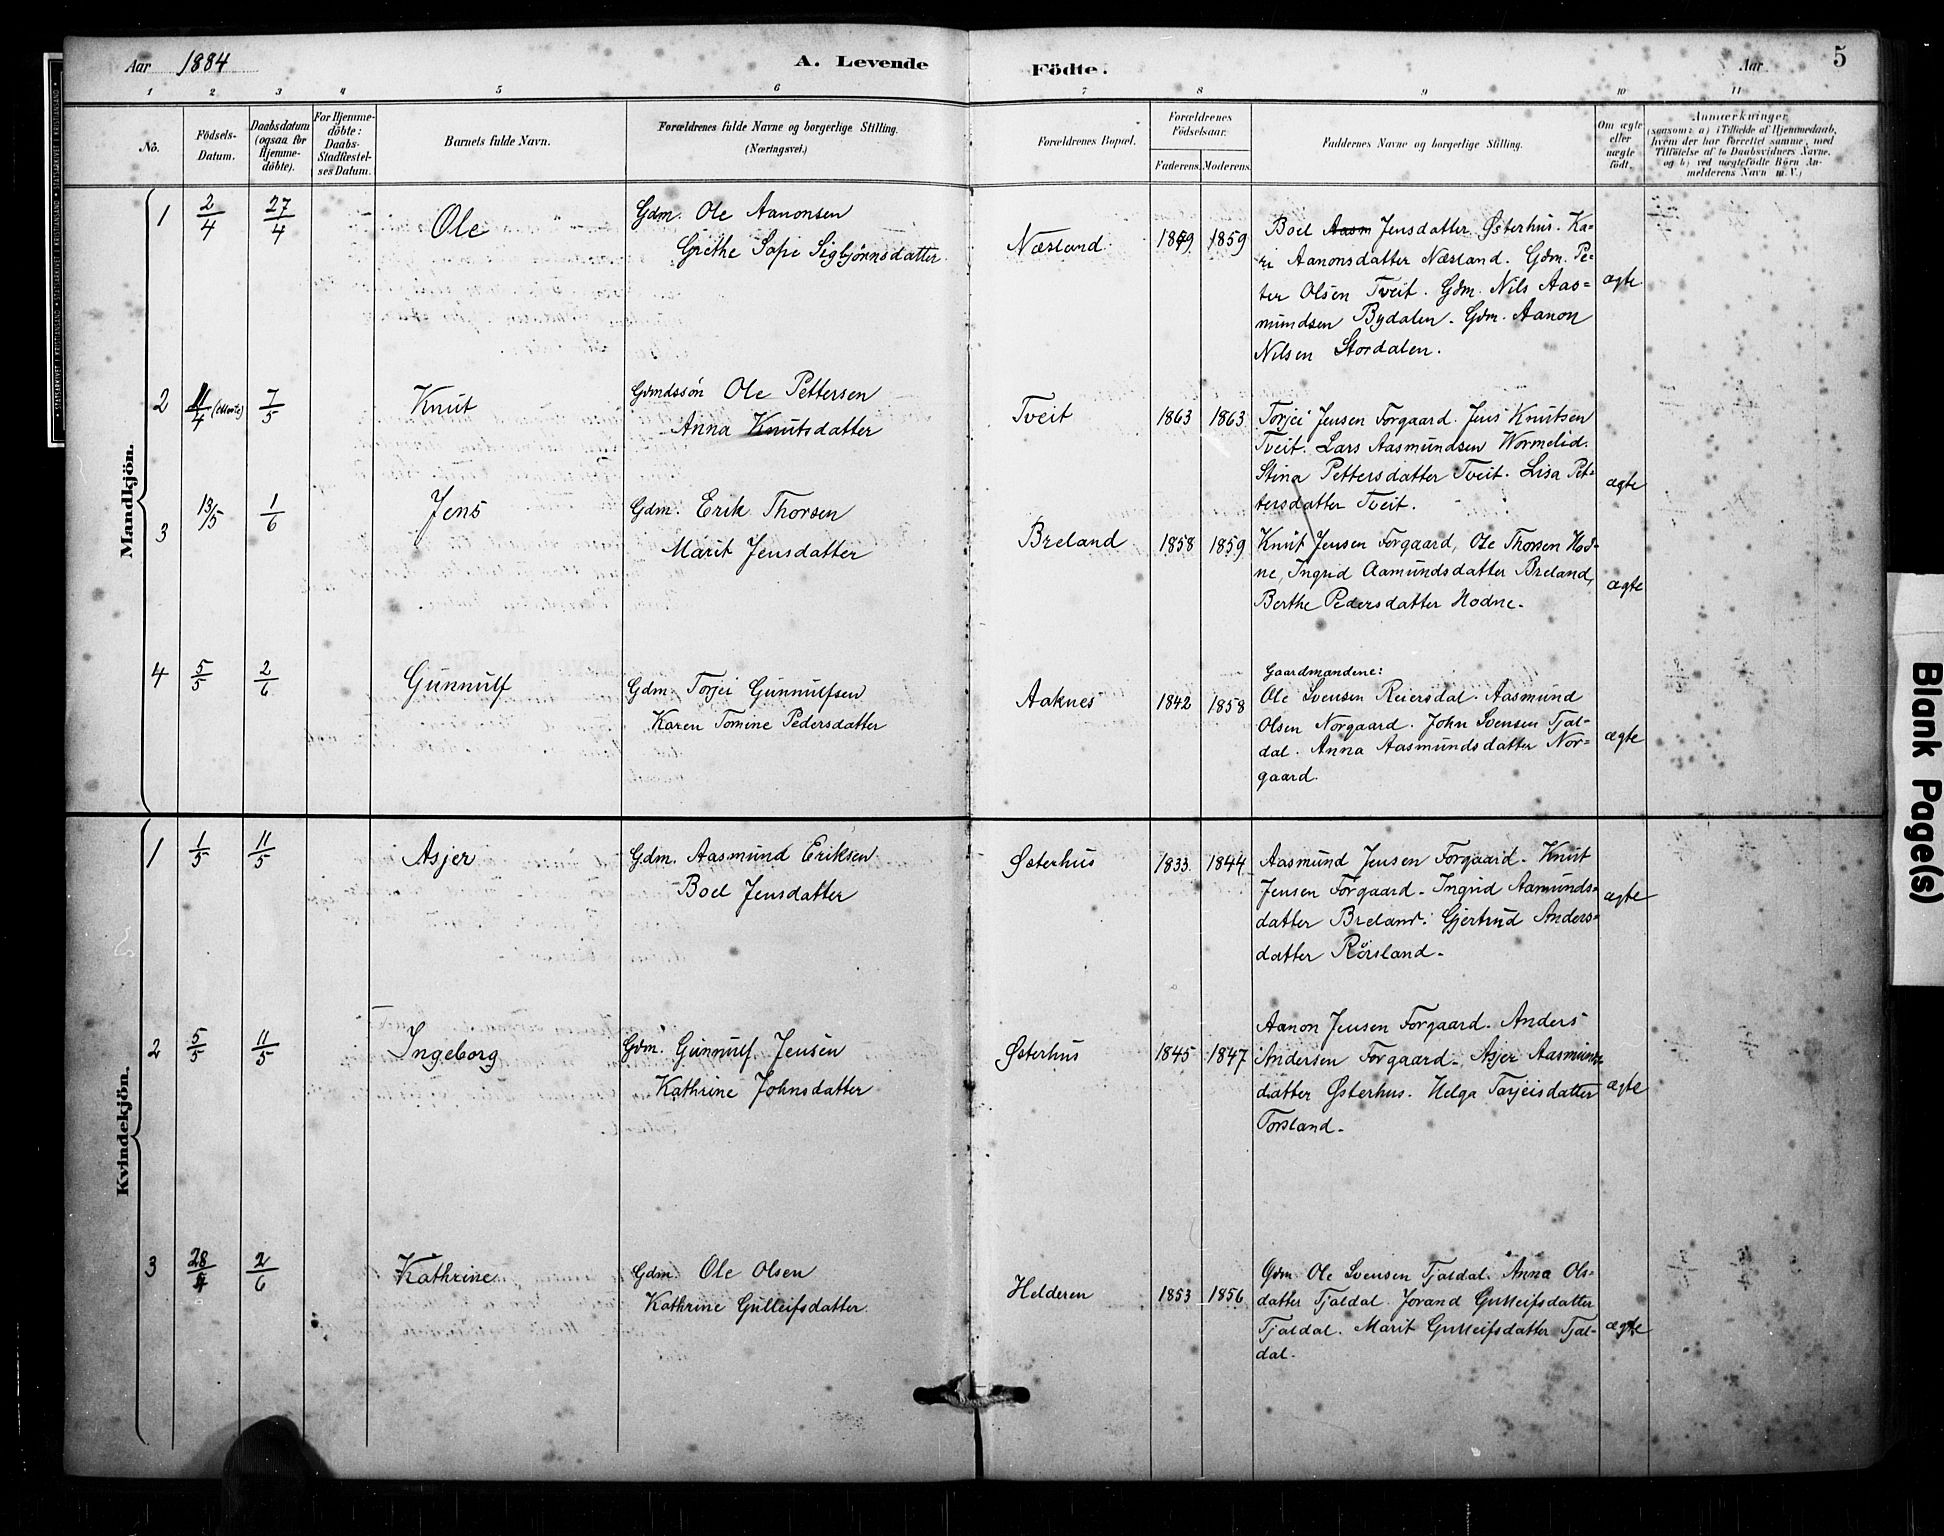 Aar 1884 A. Levende Födte. Aar 5
1 2 3 4 5 6 7 8 9 10 11
No. Födsels-Datum. Daabsdatum (ogsaa for Hjemme-döbte). For Hjemme-döbte: Daabs-Stadfæstel-ses Datum. Barnets fulde Navn. Forældrenes fulde Navne og borgerlige Stilling. (Næringsvei.) Forældrenes Bopæl. Forældrenes Födselsaar. Faderens. Moderens. Faddernes Navne og borgerlige Stilling. Om ægte eller uægte födt. Anmærkninger (saasom: a) i Tilfælde af Hjemmedaab, hvem der har forrettet samme, med Tilföielse af to Daabsvidners Navne, og b) ved uægtefödte Börn An-melderens Navn m. V.)
Mandkjön.
1 2/4 27/4 Ole Gdm. Ole Aanonsen
Grethe Sofie Sigbjørnsdatter
Næsland 1859 1859
Boel Aasm Jensdatter Østerhus. Ka=
ri Aanonsdatter Næsland. Gdm. Pe=
ter Olsen Tveit. Gdm. Nils Aas=
mundsen Bydalen. Gdm. Aanon
Nilsen Stordalen.
ægte
2 11/4 7/5 Knut Gdmdssøn Ole Pettersen
Anna Knutsdatter
Tveit 1863 1863
Torjei Jensen Forgaard. Jens Knutsen
Tveit. Lars Aasmundsen Wormelid.
Stina Pettersdatter Tveit. Lisa Pet-
tersdatter Tveit.
ægte
3 13/5 1/6 Jens Gdm. Erik Thorsen
Marit Jensdatter
Breland 1858 1859
Knut Jensen Forgaard, Ole Thorsen Hod-
ne, Ingrid Aamundsdatter Breland,
Berthe Pedersdatter Hodne.
ægte
4 5/5 2/6 Gunnulf Gdm. Torjei Gunnulfsen
Karen Tomine Pedersdatter
Aaknes 1842 1858
Gaardmandene:
Ole Svensen Reiersdal. Aasmund
Olsen Norgaard. John Svensen Tjal-
dal. Anna Aasmundsdatter Nor=
gaard.
ægte
Kvindekjön.
1 1/5 11/5 Asjer Gdm. Aasmund Eriksen
Boel Jensdatter
Østerhus 1833. 1844
Aasmund Jensen Forgaard. Knut
Jensen Forgaard. Ingrid Aamunds=
datter Breland. Gjertrud Anders=
datter Rörsland.
ægte
2 5/5 11/5 Ingeborg Gdm. Gunnulf Jensen
Kathrine Johnsdatter
Østerhus 1845 1847
Aanon Jensen Forgaard. Anders
Andersen Forgaard. Asjer Aasmunds-
datter Østerhus. Helga Tarjeisdatter
Torsland.
ægte
3 28/4 2/6 Kathrine Gdm. Ole Olsen
Kathrine Gulleifsdatter.
Helderen 1853 1856
Gdm Ole Svensen Tjaldal. Anna Ols=
datter Tjaldal. Jorand Gulleifsdatter
Tjaldal. Marit Gulleifsdatter Tjal-
dal.
ægte
Blank Page(s)